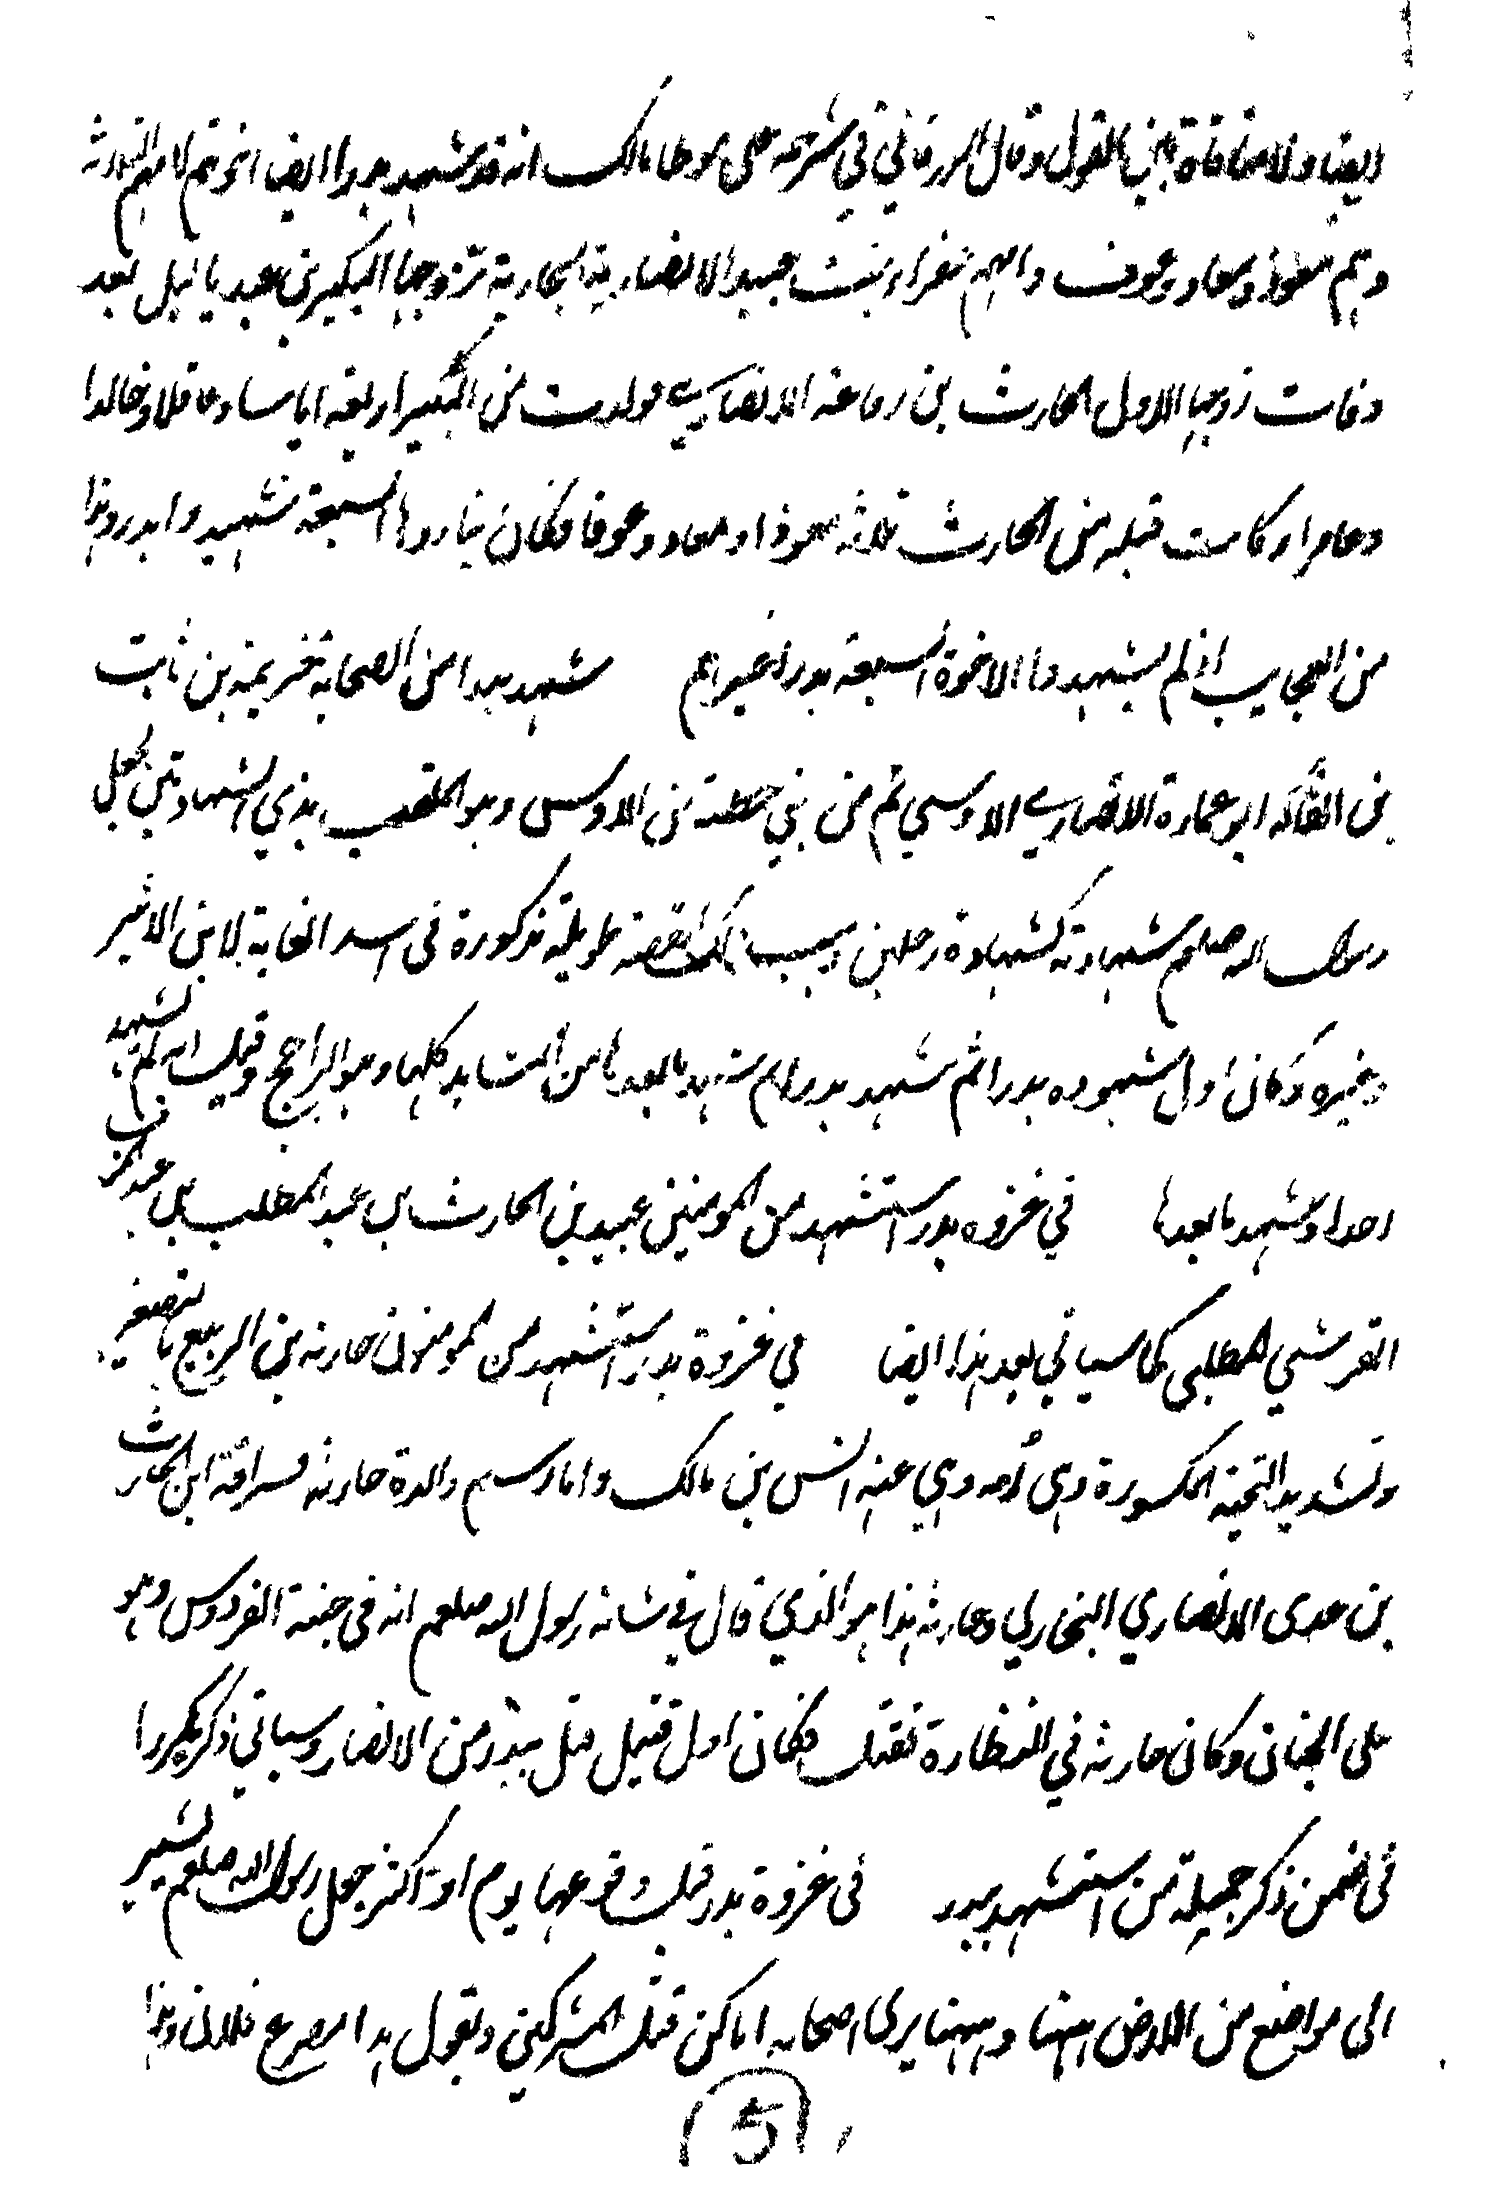 ايضا ولا منافاة بين القول وقال الزرقاني في شرحه على موطا مالك انه قد شهد بدرا ايضا اخوتهم لامهم الثلاثة
وهم معوذ ومعاذ وعوف وامهم عفراء بنت عبيد الانصارية النجارية تزوجها البكير بن عبد ياليل بعد
وفات زوجها الاول الحارث بن رفاعة الانصاري فولدت من البكير اربعة اياسا وعاقلا وخالدا
وعامرا وكانت قبله من الحارث ثلاثة معوذا ومعاذ وعوفا فكان بنا روها السبعة شهيدوا بدر وهذا
من العجايب اذ لم يشهد ما الاخوة السبعة بدرا غيرهم شهد بدرا من الصحابة خزيمة بن ثابت
بن الفاكه ابو عمارة الانصاري الاوسي ثم من بني خطمة من الاوس وهو الملقب بذي الشهادتين لجعل
رسول الله صلعم شهادته كشهادة رجلين وسبب ذلك قصة طويلة مذكورة في اسد الغابة لابن الاثير
وغيره وكان اول شهوده بدرا ثم شهد بدرا ثم شهد ما بعدها من المشاهد كلها وهو الراجح وقيل انه لم يشهد
احدا وشهد ما بعدها في غزوه بدر استشهد من المومنين عبيد بن الحارث بن عبد المطلب بن عبد مناف
القرشي المطلبي كما سياتي بعد هذا ايضا في غزوة بدر استشهد من المومنون حارثه بن الربيع بالتصغير
وتشديد التحتية المكسورة وهي امه روي عنه انس بن مالك واما اسم والدة حارثه فسراقة ابن الحارث
بن عدى الانصاري النجاري وحارثه هذا هو الذي قال في شانه رسول الله صلعم انه في جنة الفردوس وهو
على الجنان وكان حارثه في النظارة فقتل فكان اول قتيل قتل ببدر من الانصار وسياتي ذكره مكررا
في ضمن ذكر جميلة من استشهد ببدر في غزوة بدر قبل وقوعها يوم او اكثر جعل رسول الله صلعم يشير
الى مواضع من الارض ههنا وههنا يرى اصحابه اماكن قتل المشركين ويقول هذا مصرع فلان وهذا
(5)